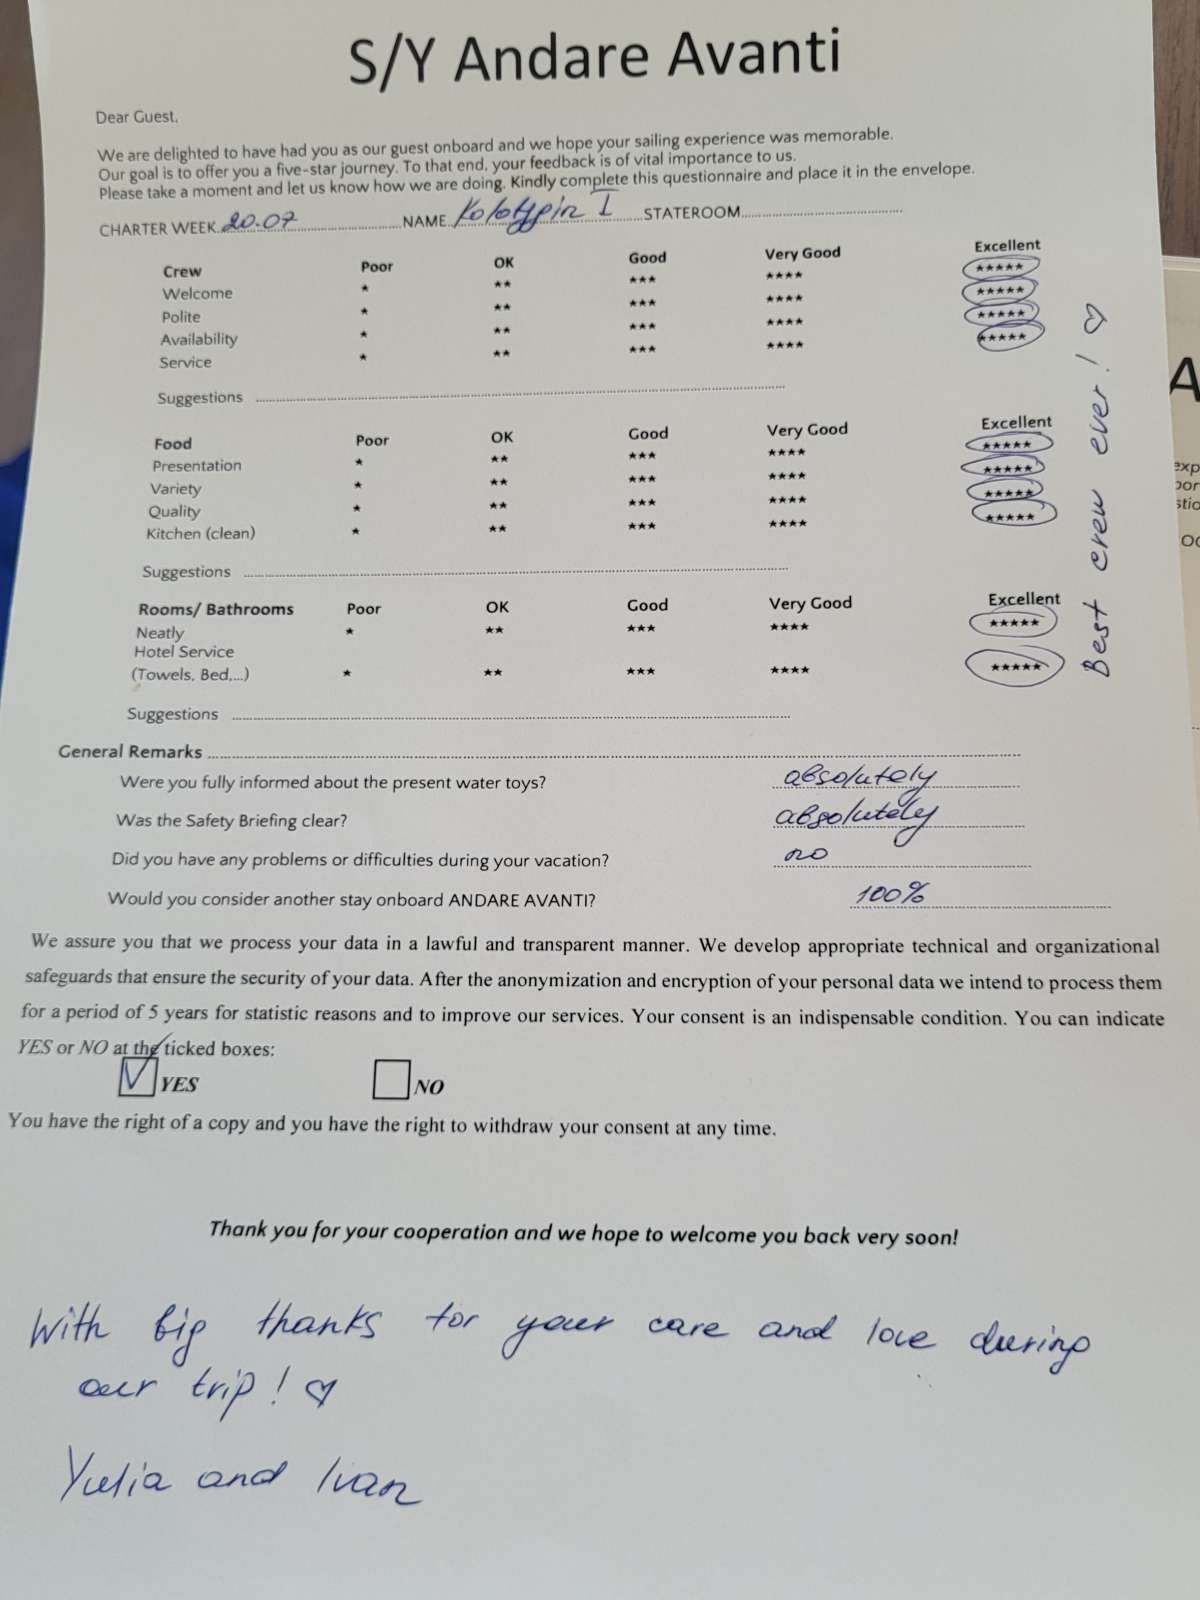 S/Y Andare Avanti
Dear Guest,
We are delighted to have had you as our guest onboard and we hope your sailing experience was memorable.
Our goal is to offer you a five-star journey. To that end, your feedback is of vital importance to us.
Please take a moment and let us know how we are doing. Kindly complete this questionnaire and place it in the envelope.
CHARTER WEEK 20.07 NAME Kolotypin I STATEROOM
Crew Poor OK Good Very Good Excellent
Welcome ★ ★★ ★★★ ★★★★ ★★★★★
Polite ★ ★★ ★★★ ★★★★ ★★★★★
Availability ★ ★★ ★★★ ★★★★ ★★★★★
Service ★ ★★ ★★★ ★★★★ ★★★★★
Suggestions
Food Poor OK Good Very Good Excellent
Presentation ★ ★★ ★★★ ★★★★ ★★★★★
Variety ★ ★★ ★★★ ★★★★ ★★★★★
Quality ★ ★★ ★★★ ★★★★ ★★★★★
Kitchen (clean) ★ ★★ ★★★ ★★★★ ★★★★★
Suggestions
Rooms/ Bathrooms Poor OK Good Very Good Excellent
Neatly ★ ★★ ★★★ ★★★★ ★★★★★
Hotel Service
(Towels, Bed,...) ★ ★★ ★★★ ★★★★ ★★★★★
Suggestions
Best crew ever! ♡
General Remarks
Were you fully informed about the present water toys? absolutely
Was the Safety Briefing clear? absolutely
Did you have any problems or difficulties during your vacation? no
Would you consider another stay onboard ANDARE AVANTI? 100%
We assure you that we process your data in a lawful and transparent manner. We develop appropriate technical and organizational
safeguards that ensure the security of your data. After the anonymization and encryption of your personal data we intend to process them
for a period of 5 years for statistic reasons and to improve our services. Your consent is an indispensable condition. You can indicate
YES or NO at the ticked boxes:
YES NO
You have the right of a copy and you have the right to withdraw your consent at any time.
Thank you for your cooperation and we hope to welcome you back very soon!
With big thanks for your care and love during
our trip! ♡
Yulia and Ivan